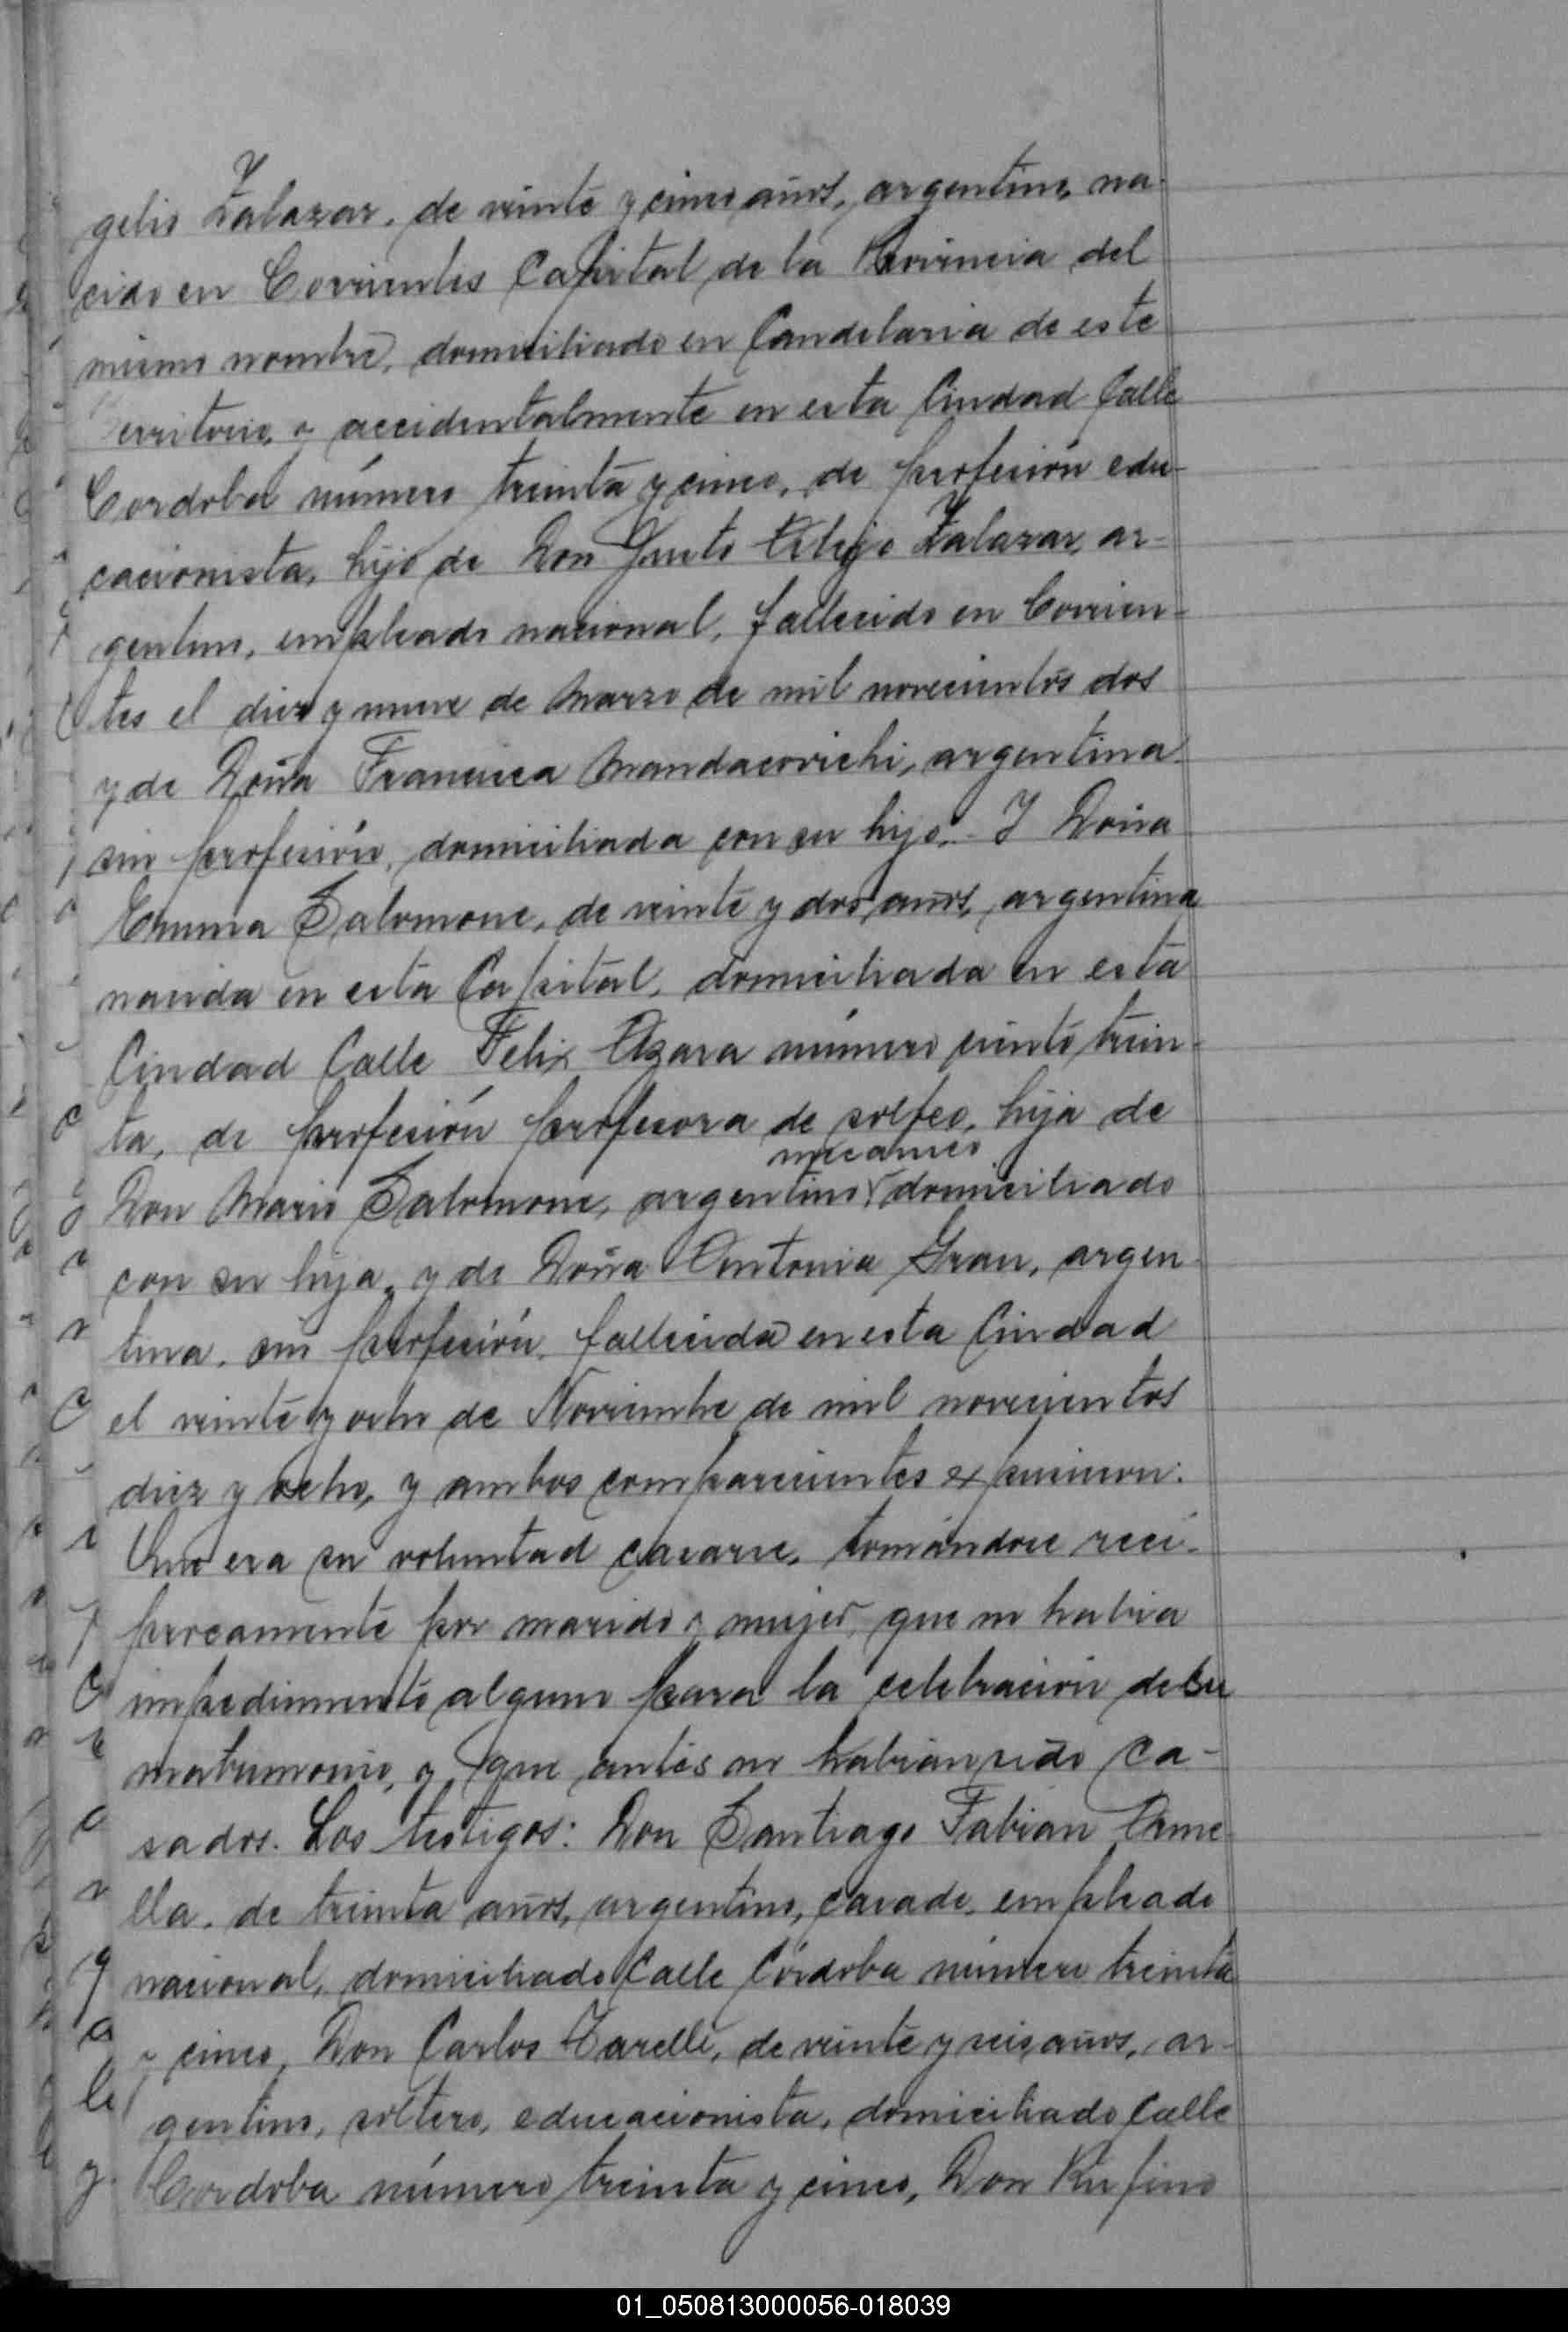 gelio Zalazar, de veinte y cinco años, argentino, na-
cido en Corrientes Capital de la Provincia del
mismo nombre, domiciliado en Candelaria de este
erritorio, y accidentalmente en esta Ciudad Calle
Cordoba número treinta y cinco, de profesión edu-
cacionista, hijo de Don Justo Alejo Zalazar, ar-
gentino, empleado nacional, fallecido en Corrien-
tes el diez y nueve de Marzo de mil novecientos dos
y de Doña Francisca Mandacovichi, argentina
sin profesión, domiciliada con su hijo.- Y Doña
Emma Salomone, de veinte y dos años, argentina
nacida en esta Capital, domiciliada en esta
Ciudad Calle Felix Azara número ciento trein-
ta, de profesión profesora de solfeo, hija de
mecanico
Don Mario Salomone, argentino, domiciliado
con su hija, y de Doña Antonia Grau, argen-
tina, sin profesión, fallecida en esta Ciudad
el veinte y ocho de Noviembre de mil novecientos
diez y ocho, y ambos comparecientes expusieron:
Que era su voluntad casarse, tomándose reci-
procamente por marido y mujer, que no habia
impedimento alguno para la celebración de su
matrimonio, y que antes no habian sido ca-
sados. Los testigos: Don Santiago Fabian
lla, de treinta años, argentino, casado, empleado
nacional, domiciliado Calle Córdoba número treinta
y cinco, Don Carlos Zarelli, de veinte y seis años, ar-
gentino, soltero, educacionista, domiciliado Calle
Cordoba número treinta y cinco, Don Rufino
01_050813000056-018039